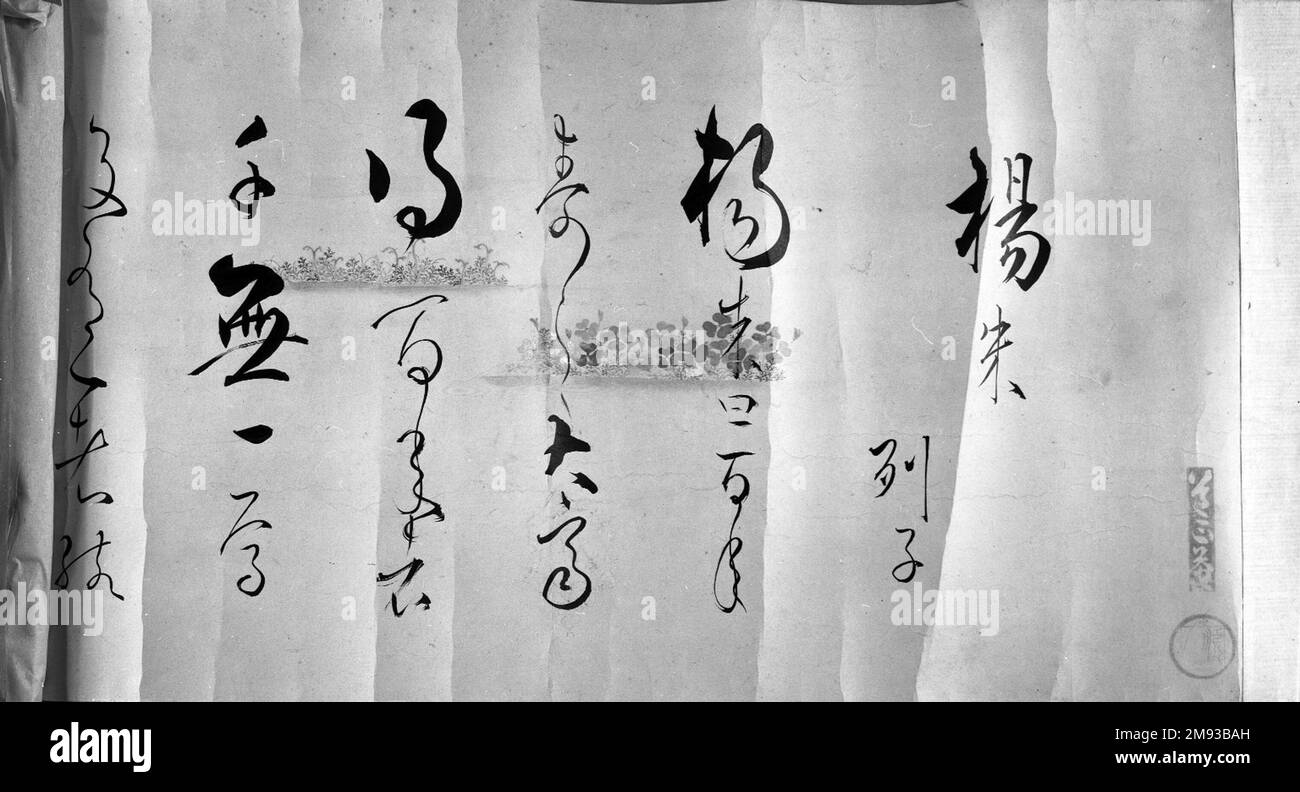 楊朱
列子
楊朱曰百年
壽之大齊
得百年者
千無一焉
alamy
alamy
alamy
alamy
alamy
alamy
Image ID: 2M93BAH
www.alamy.com